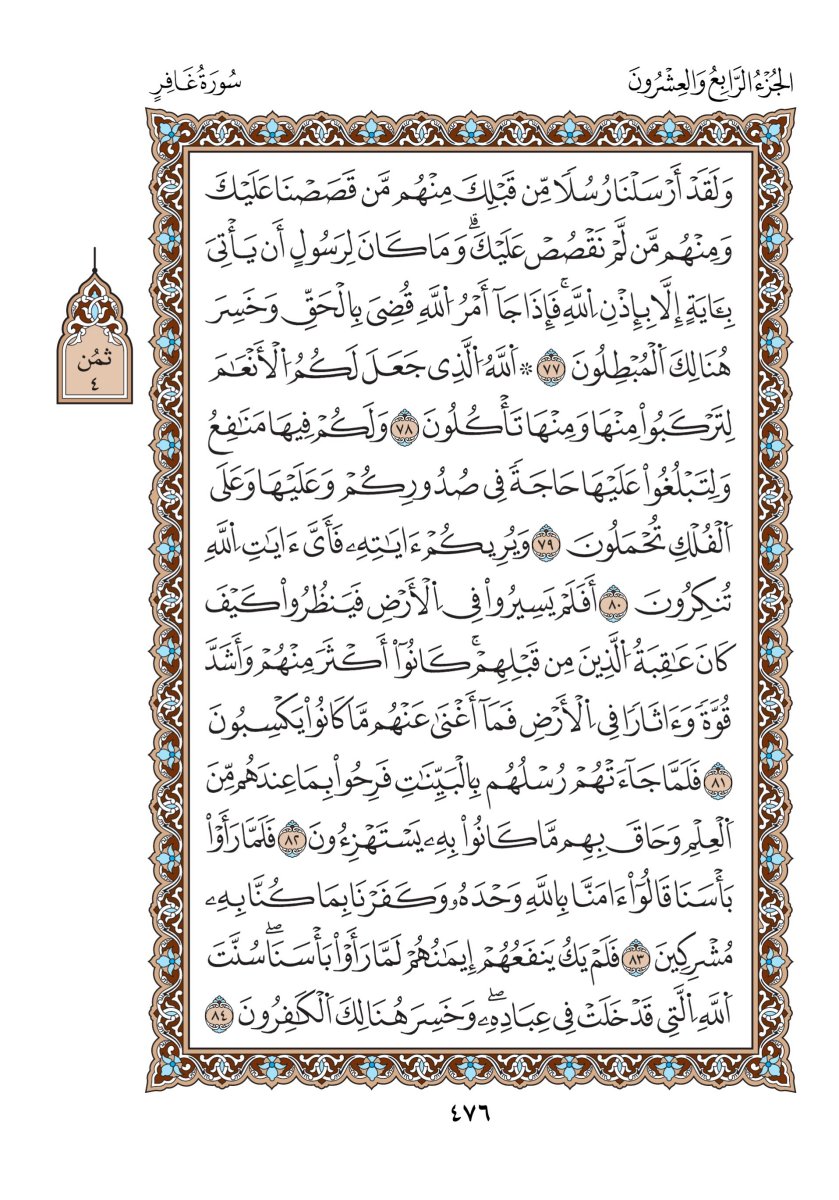 الجُزْءُ الرَّابِعُ وَالعِشْرُونَ
سُورَةُ غَافِرٍ
وَلَقَدْ أَرْسَلْنَا رُسُلًا مِّن قَبْلِكَ مِنْهُم مَّن قَصَصْنَا عَلَيْكَ
وَمِنْهُم مَّن لَّمْ نَقْصُصْ عَلَيْكَۗ وَمَا كَانَ لِرَسُولٍ أَن يَأْتِيَ
بِـَٔايَةٍ إِلَّا بِإِذْنِ اِ۬للَّهِۚ فَإِذَا جَآ أَمْرُ اُ۬للَّهِ قُضِيَ بِالْحَقِّ وَخَسِرَ
هُنَالِكَ اَ۬لْمُبْطِلُونَ ٧٧ ۞ اَ۬للَّهُ اُ۬لَّذِي جَعَلَ لَكُمُ اُ۬لْأَنْعَٰمَ
لِتَرْكَبُواْ مِنْهَا وَمِنْهَا تَأْكُلُونَ ٧٨ وَلَكُمْ فِيهَا مَنَٰفِعُ
وَلِتَبْلُغُواْ عَلَيْهَا حَاجَةً فِي صُدُورِكُمْ وَعَلَيْهَا وَعَلَى
اَ۬لْفُلْكِ تُحْمَلُونَ ٧٩ وَيُرِيكُمْ ءَايَٰتِهِۦ فَأَيَّ ءَايَٰتِ اِ۬للَّهِ
تُنكِرُونَ ٨٠ أَفَلَمْ يَسِيرُواْ فِي اِ۬لْأَرْضِ فَيَنظُرُواْ كَيْفَ
كَانَ عَٰقِبَةُ اُ۬لَّذِينَ مِن قَبْلِهِمْۚ كَانُوٓاْ أَكْثَرَ مِنْهُمْ وَأَشَدَّ
قُوَّةً وَءَاثَارًا فِي اِ۬لْأَرْضِ فَمَآ أَغْنَىٰ عَنْهُم مَّا كَانُواْ يَكْسِبُونَ
٨١ فَلَمَّا جَآءَتْهُمْ رُسْلُهُم بِالْبَيِّنَٰتِ فَرِحُواْ بِمَا عِندَهُم مِّنَ
اَ۬لْعِلْمِ وَحَاقَ بِهِم مَّا كَانُواْ بِهِۦ يَسْتَهْزِءُونَ ٨٢ فَلَمَّا رَأَوْاْ
بَأْسَنَا قَالُوٓاْ ءَامَنَّا بِاللَّهِ وَحْدَهُۥ وَكَفَرْنَا بِمَا كُنَّا بِهِۦ
مُشْرِكِينَ ٨٣ فَلَمْ يَكُ يَنفَعُهُمْ إِيمَٰنُهُمْ لَمَّا رَأَوْاْ بَأْسَنَاۖ سُنَّتَ
اَ۬للَّهِ اِ۬لَّتِي قَدْ خَلَتْ فِي عِبَادِهِۦۖ وَخَسِرَ هُنَالِكَ اَ۬لْكَٰفِرُونَ ٨٤
ثُمُن
٤
٤٧٦